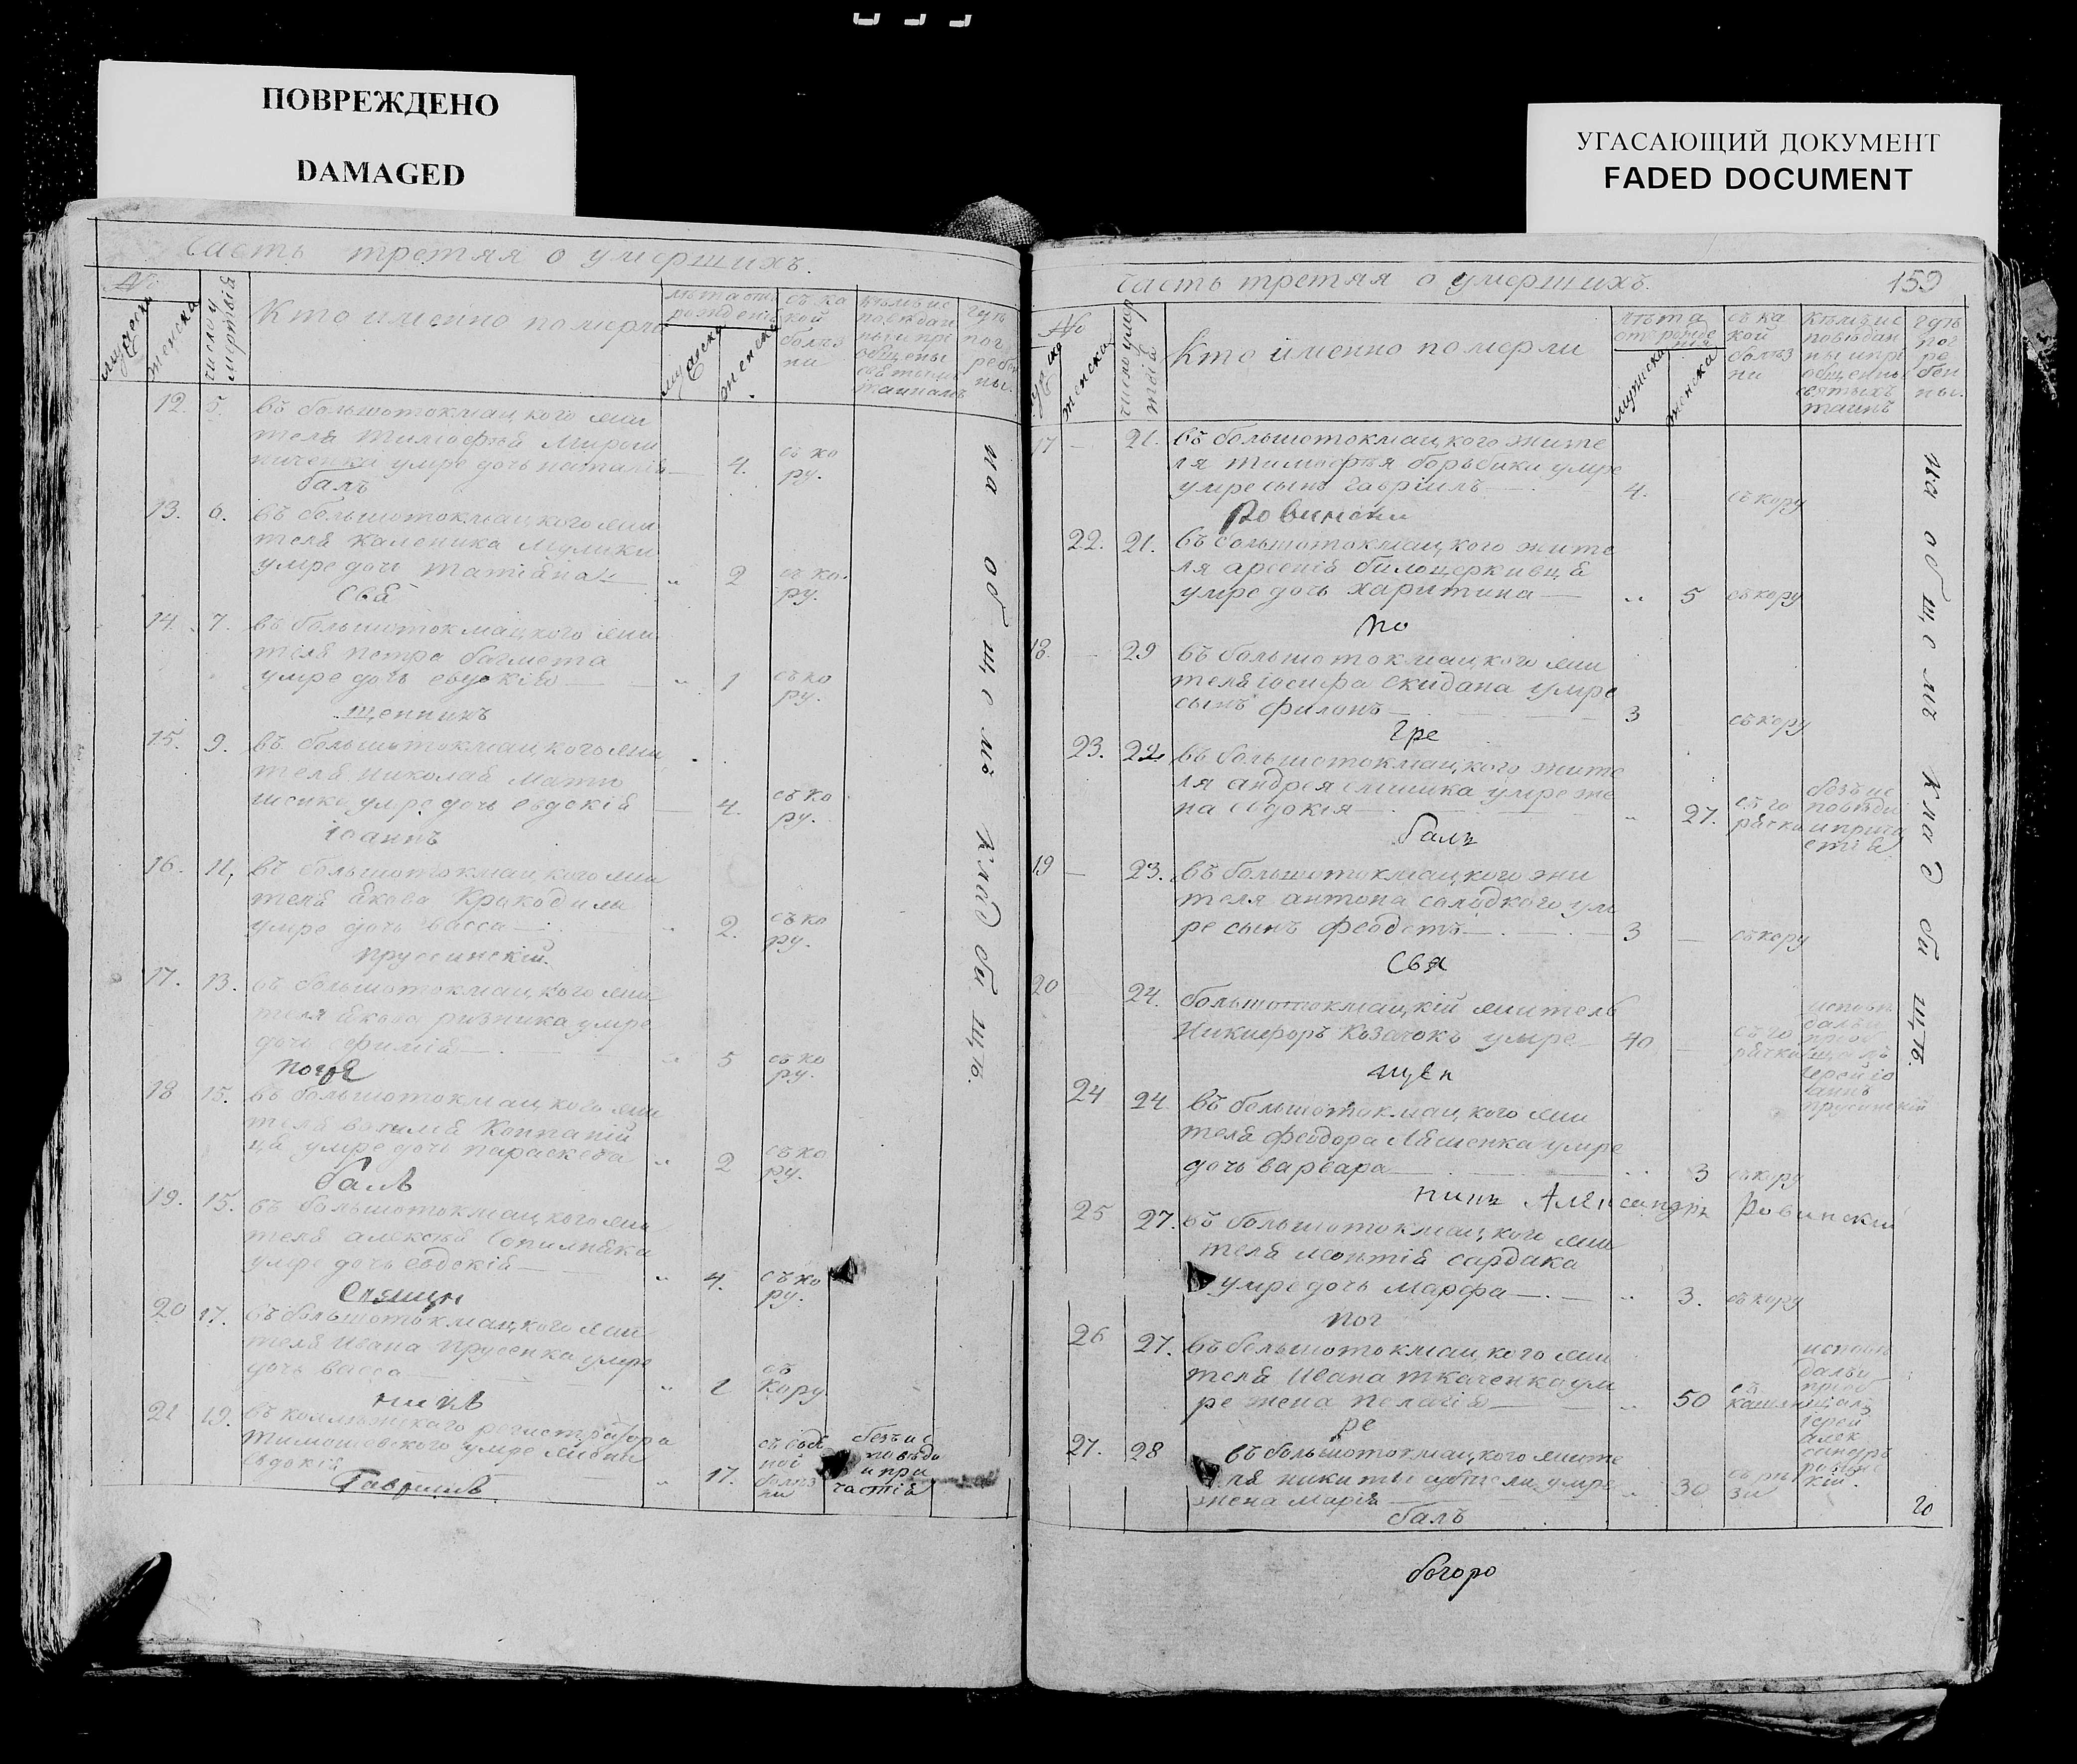 ПОВРЕЖДЕНО
DAMAGED
УГАСАЮЩИЙ ДОКУМЕНТ
FADED DOCUMENT
Часть третяя о умершихъ.
№
мужеска
женска
число умертвій
Кто именно померли
лѣта отъ рожденія
мужеска
женска
съ какой болѣзни
кѣмъ исповѣданы и пріобщены святыхъ таинъ
гдѣ погребены.
12. 5. въ большотокмацкого жи
теля тимофѣя Мирош
ниченка умре дочь наталія — 4. съ ко
ру.
балъ
13. 6. въ большотокмацкого жи
теля каленика Мулики
умре дочь татіяна — „ 2 съ ко.
ру.
Свя
14. 7. въ большотокмацкого жи
теля петра багмета
умре дочь евдокія — „ 1 съ ко
ру.
щенникъ
15. 9. въ большотокмацкого жи
теля николая мати
шенка умре дочь евдокія — 4. съ ко
ру.
іоаннъ
16. 11, въ большотокмацкого жи
теля якова Крокодила
умре дочь васса — „ 2. съ ко
ру.
прусинскій.
17. 13. въ большотокмацкого жи
теля якова ризника умре
дочь ефимія — „ 5 съ ко
ру.
погре
18 15. въ большотокмацкого жи
теля
ца умре дочь параскева „ 2 съ ко
ру.
балъ
19. 15. въ большотокмацкого жи
теля алексѣя Сопилняка
умре дочь евдокія — „ 4. съ ко
ру.
Свящ
20 17. въ большотокмацкого жи
теля ивана прусенка умре
дочь васса — „ 1 съ
кору
никъ
21 19. въ коллежскаго регистратора
тимошевского умре
евдокія „ 17. съ водя
ной
болѣз
ни
безъ ис
повѣди
и при
частія
Гавриилъ
на общемъ кладбищѣ.
Часть третяя о умершихъ.
159
№
мужеска
женска
число умертвій
Кто именно померли
лѣта отъ рожденія
мужеска
женска
съ какой болѣзни
кѣмъ исповѣданы и пріобщены святыхъ таинъ
гдѣ погребены.
17 — 21. въ большотокмацкого жите
ля тимофѣя борьбики умре
умре сынъ гавріилъ — 4. съ кору
Ровински
22. 21. въ большотокмацкого жите
ля арсенія билоцеркивця
умре дочь харитина — „ 5 съ кору
по
18. 29 въ большотокмацкого жи
теля іосифа скидана умре
сынъ филонъ — 3 съ кору
гре
23. 22 въ большотокмацкого жите
ля андрея слишка умре же
на евдокія — „ 27. съ го
рячки
безъ ис
повѣди
и прича
стія
балъ
19 — 23. въ большотокмацкого жи
теля антона солодкого ум
ре сынъ феодотъ — 3 — съ кору
Свя
20 24. большотокмацкій житель
Никифоръ Козачокъ умре — 40 — съ го
рячки
исповѣ
далъ и
пріоб
щалъ
іерей іо
аннъ
прусинскій
щен
24 24 въ большотокмацкого жи
теля феодора Ляшенка умре
дочь варвара — 3 съ кору
никъ Александръ Ровинскій
25 27. въ большотокмацкого жи
теля леонтія сардака
умре дочь марфа — „ 3. съ кору
пог
26 27. въ большотокмацкого жи
теля ивана ткаченка ум
ре жена пелагія — „ 50 съ
кашля
исповѣ
далъ и
пріоб
щалъ
іерей
алек
сандръ
ровинс
кій.
ре
27. 28 въ большотокмацкого жите
ля никиты умре
жена марія — „ 30
балъ
20
на общемъ кладбищѣ.
богоро